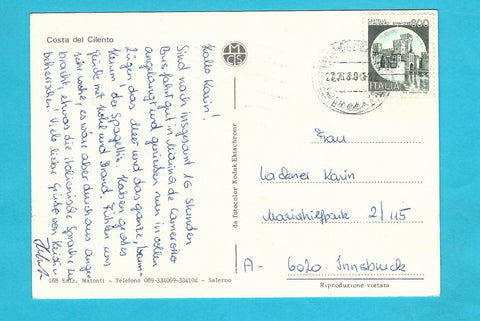 Costa del Cilento
Hallo Karin!
Sind nach insgesamt 16 Stunden
Busfahrt gut in Marina de Camerotta
angelangt und genießen nun in vollen
Zügen das Meer und das ganze
Haben großes
und Strand. Fühlen uns
sehr wohl, es wäre aber durchaus ange-
bracht, etwas die italienische Sprache zu
beherrschen. Viele liebe Grüße von Heidi
168 Ediz. Matonti - Telefono 089-334069-334104 - Salerno
MCS
da fotocolor Kodak Ektachrome
800
ITALIA
Frau
Ladener Karin
Mariahilfpark 2/115
A- 6020 Innsbruck
Riproduzione vietata